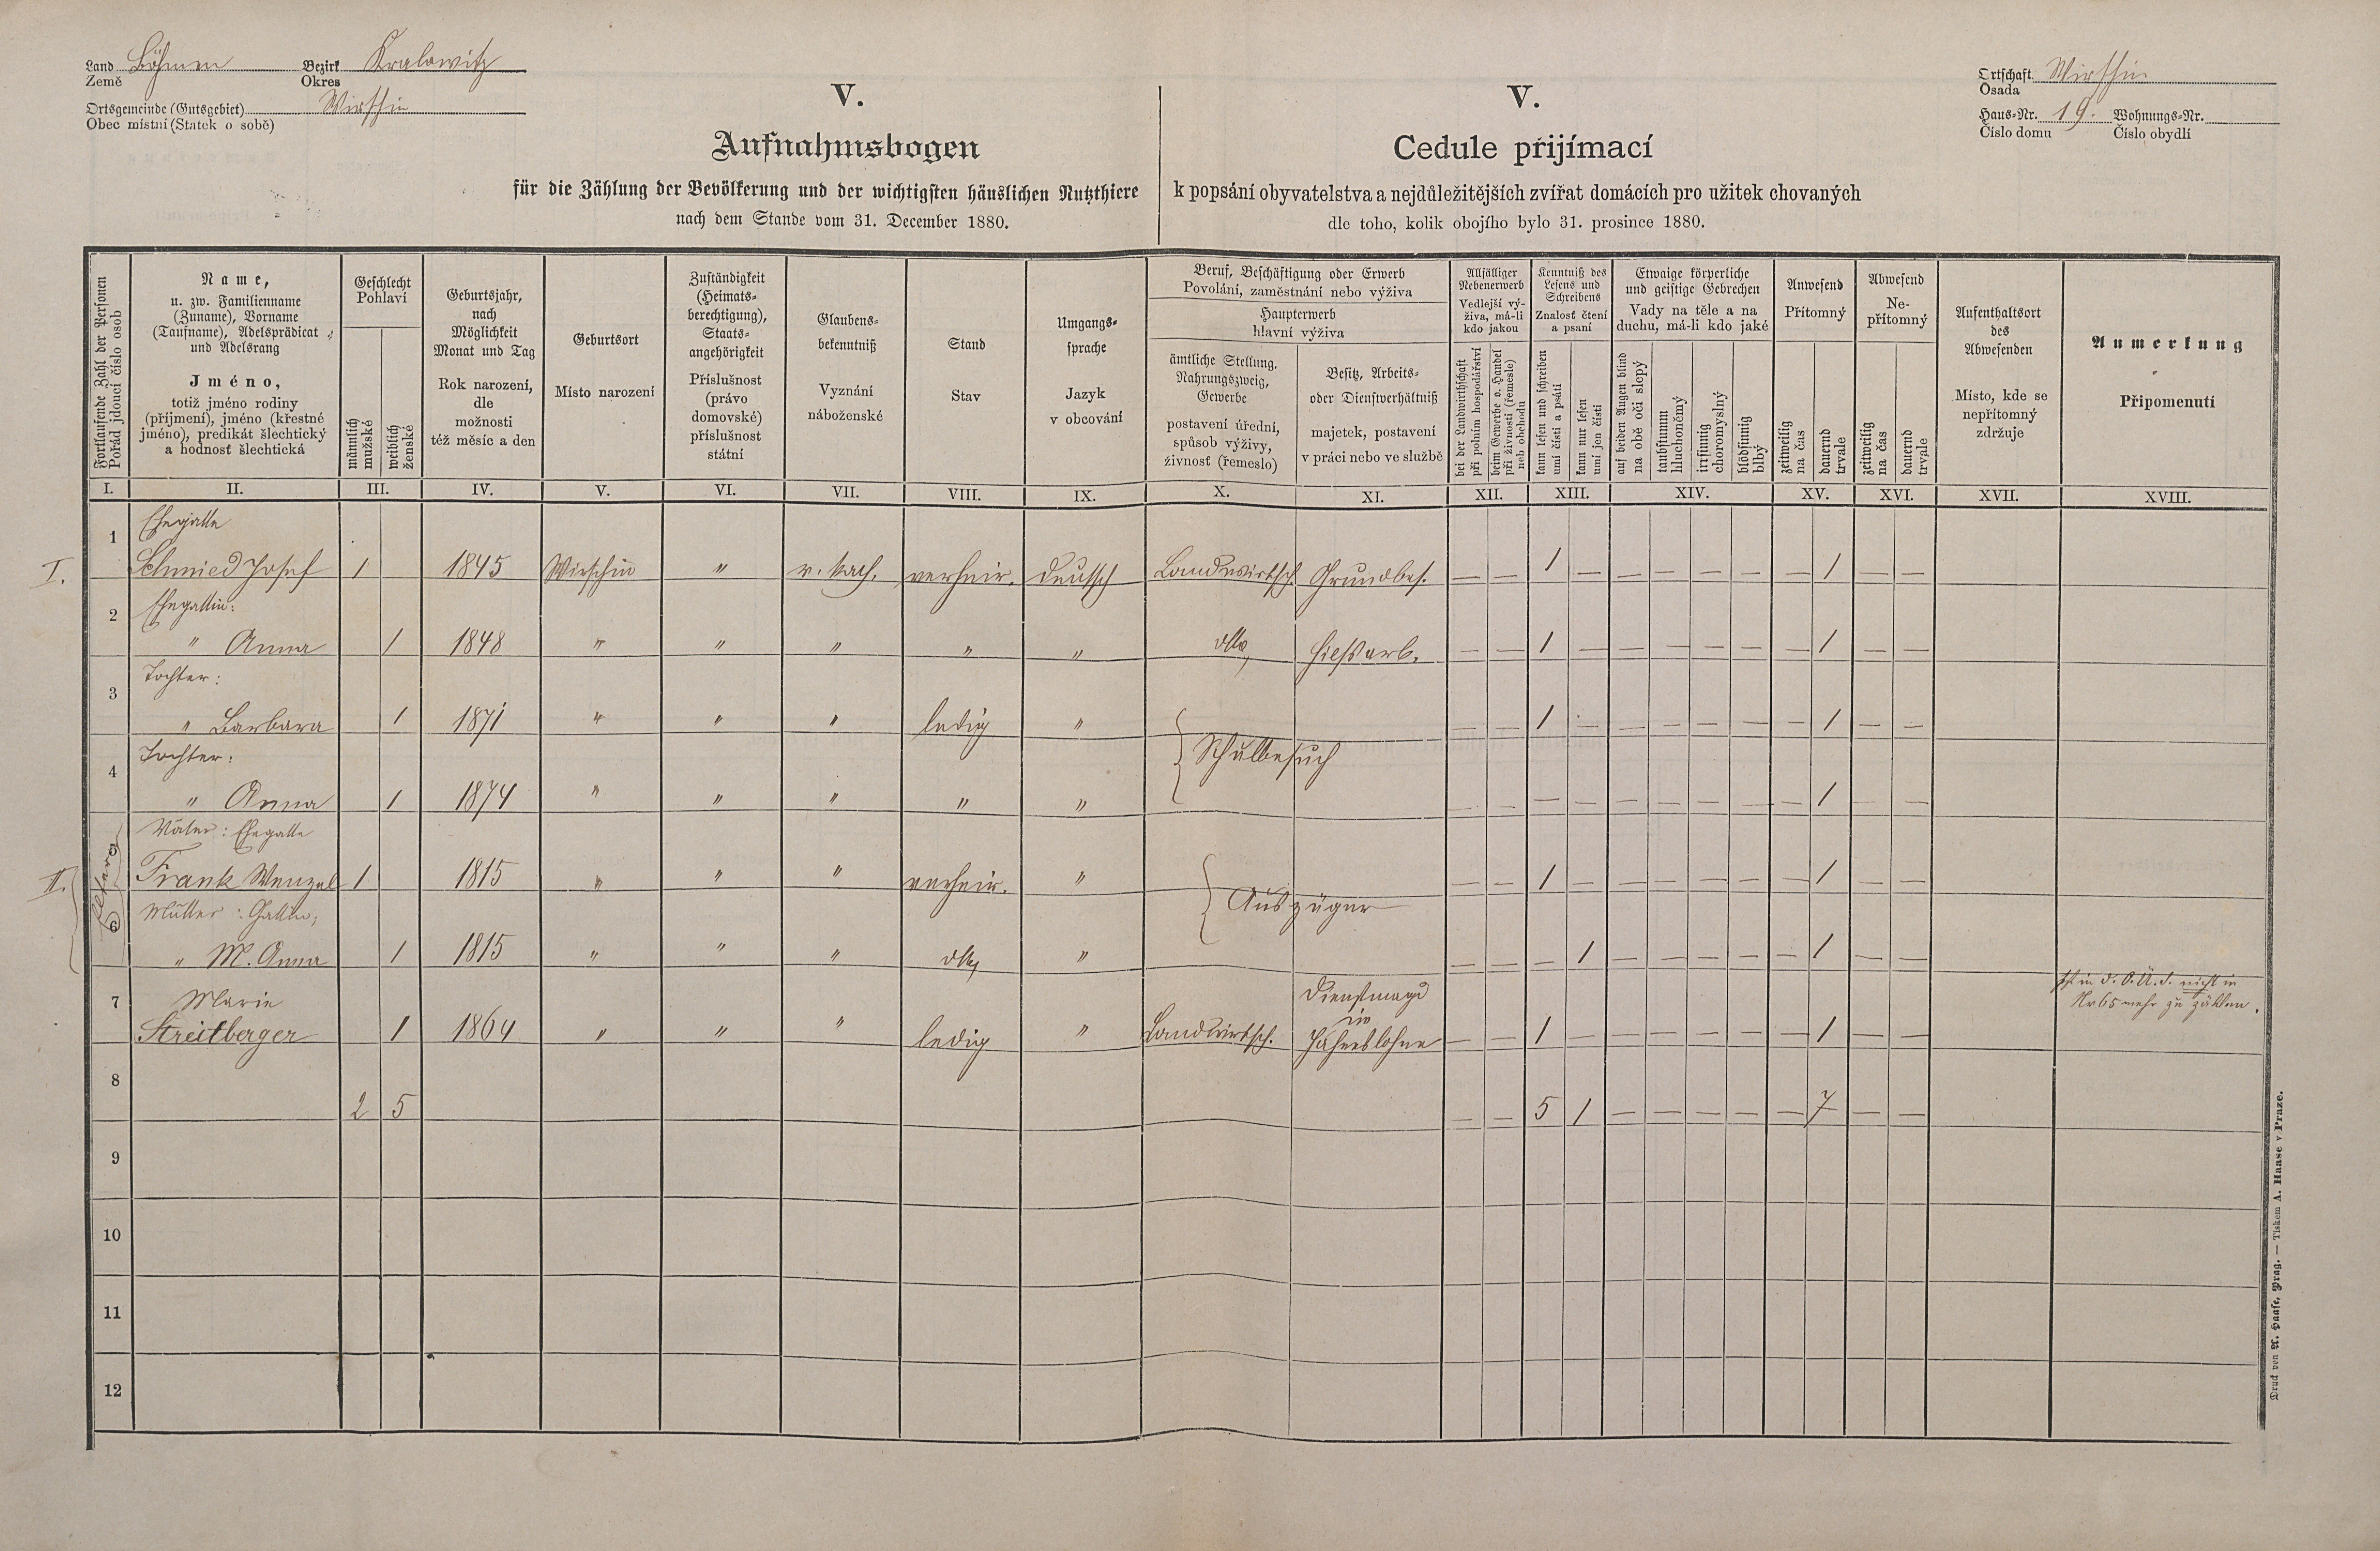 Land Böhmen Bezirk Kralowitz
Země Okres
Ortsgemeinde (Gutsgebiet) Wirschin
Obec místní (Statek o sobě)
V.
Aufnahmsbogen
für die Zählung der Bevölkerung und der wichtigsten häuslichen Nutzthiere
nach dem Stande vom 31. December 1880.
V.
Cedule přijímací
k popsání obyvatelstva a nejdůležitějších zvířat domácích pro užitek chovaných
dle toho, kolik obojího bylo 31. prosince 1880.
Ortschaft Wirschin
Osada
Haus-Nr. 19. Wohnungs-Nr.
Číslo domu Číslo obydlí
Fortlaufende Zahl der Personen
Pořád jdoucí číslo osob
Name,
u. zw. Familienname
(Zuname), Vorname
(Taufname), Adelsprädicat
und Adelsrang
Jméno,
totiž jméno rodiny
(příjmení), jméno (křestné
jméno), predikát šlechtický
a hodnost šlechtická
Geschlecht
Pohlaví
männlich
mužské
weiblich
ženské
Geburtsjahr,
nach
Möglichkeit
Monat und Tag
Rok narození,
dle
možnosti
též měsíc a den
Geburtsort
Místo narození
Zuständigkeit
(Heimats-
berechtigung),
Staats-
angehörigkeit
Příslušnost
(právo
domovské)
příslušnost
státní
Glaubens-
bekenntniß
Vyznání
náboženské
Stand
Stav
Umgangs-
sprache
Jazyk
v obcování
Beruf, Beschäftigung oder Erwerb
Povolání, zaměstnání nebo výživa
Haupterwerb
hlavní výživa
ämtliche Stellung,
Nahrungszweig,
Gewerbe
postavení úřední,
spůsob výživy,
živnosť (řemeslo)
Besitz, Arbeits-
oder Dienstverhältniß
majetek, postavení
v práci nebo ve službě
Allfälliger
Nebenerwerb
Vedlejší vý-
živa, má-li
kdo jakou
bei der Landwirthschaft
při polním hospodářství
beim Gewerbe o. Handel
při živnosti (řemesle)
neb obchodu
Kenntniß des
Lesens und
Schreibens
Znalosť čtení
a psaní
kann lesen und schreiben
umí čísti a psáti
kann nur lesen
umí jen čísti
Etwaige körperliche
und geistige Gebrechen
Vady na těle a na
duchu, má-li kdo jaké
auf beiden Augen blind
na obě oči slepý
taubstumm
hluchoněmý
irrsinnig
choromyslný
blödsinnig
blbý
Anwesend
Přítomný
zeitweilig
na čas
dauernd
trvale
Abwesend
Ne-
přítomný
zeitweilig
na čas
dauernd
trvale
Aufenthaltsort
des
Abwesenden
Místo, kde se
nepřítomný
zdržuje
Anmerkung
Připomenutí
I. II. III. IV. V. VI. VII. VIII. IX. X. XI. XII. XIII. XIV. XV. XVI. XVII. XVIII.
1 Ehegatte
I. Schmied Josef 1 1845 Wirschin " r. kath. verheir. deutsch Landwirtsch. Grundbes. — — 1 — — — — — — 1 — —
2 Ehegattin:
" Anna 1 1848 " " " " " dtto hilfsarb. — — 1 — — — — — — 1 — —
3 Tochter:
" Barbara 1 1871 " " " ledig " — — 1 — — — — — — 1 — —
Schulbesuch
4 Tochter:
" Anna 1 1874 " " " " " — — — — — — — — — 1 — —
5 Vater: Ehegatte
II. Frank Wenzel 1 1815 " " " verheir. " — — 1 — — — — — — 1 — —
Auszügner
6 Mutter: Gattin;
" M. Anna 1 1815 " " " dtto " — — — 1 — — — — — 1 — —
7 Marie
Streitberger 1 1864 " " " ledig " Landwirtsch. Dienstmagd
im
Jahreslohne — — 1 — — — — — — 1 — —
nicht in
Nr 65 mehr zu zählen.
8
2 5 — — 5 1 — — — — — 7 — —
9
10
11
12
Druck von A. Haase, Prag. — Tiskem A. Haase v Praze.